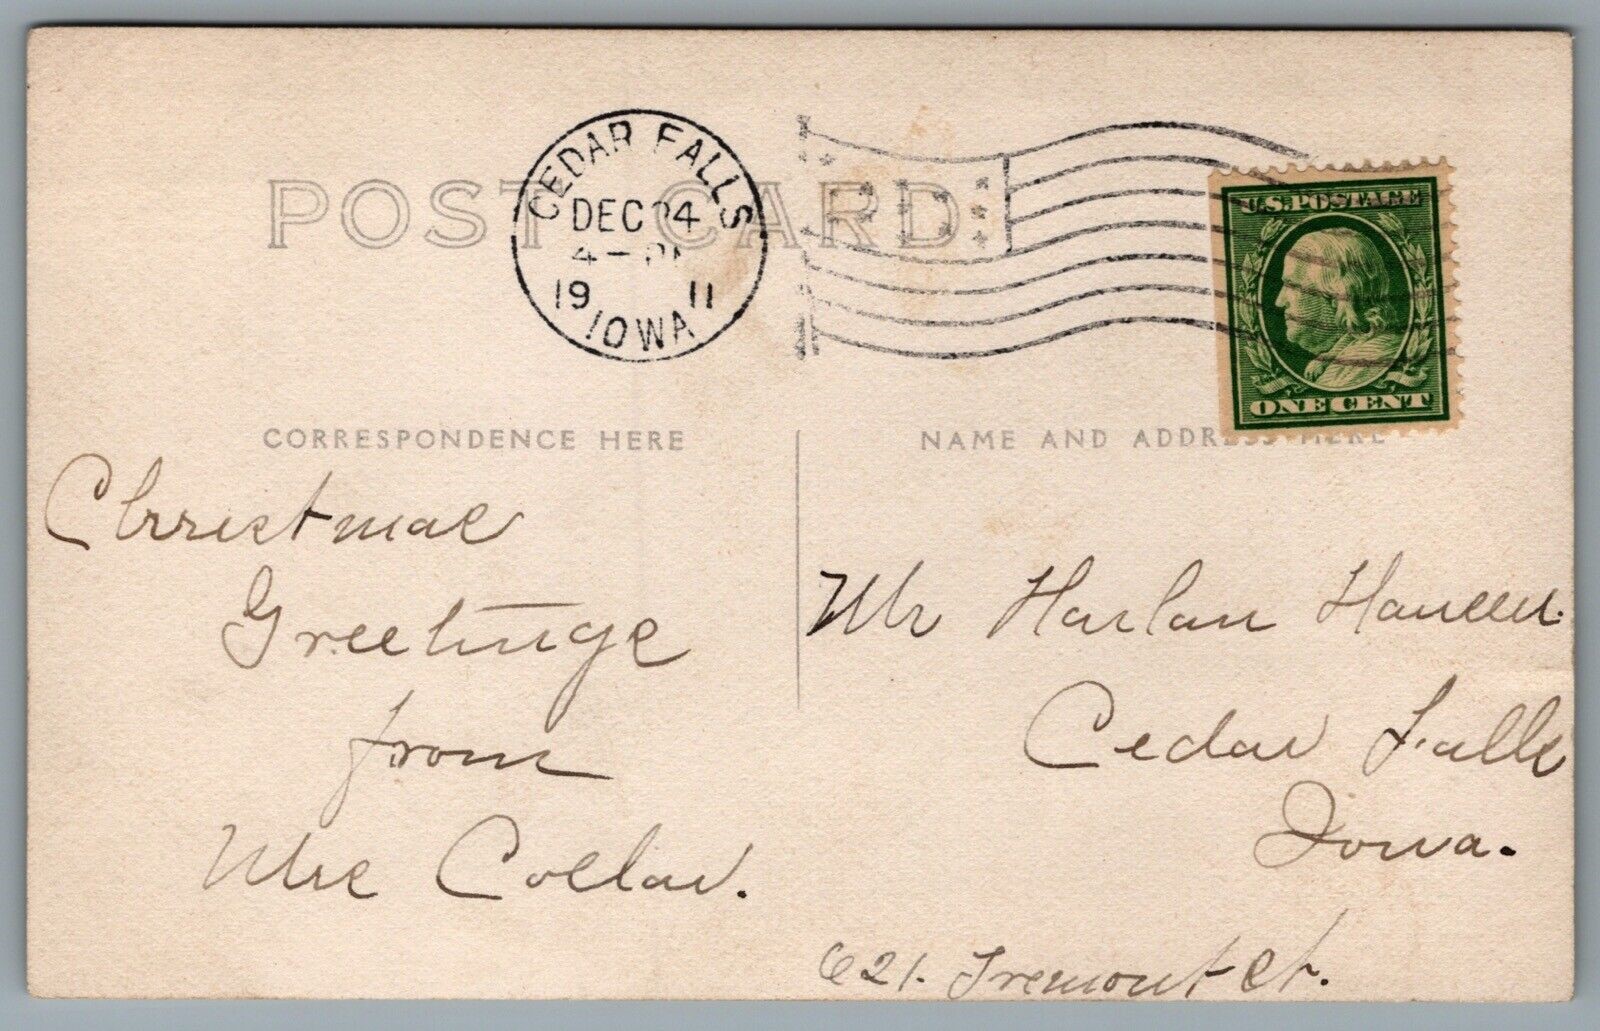 POST CARD
CEDAR FALLS
DEC 24
4 - PM
19 11
IOWA
U.S. POSTAGE
ONE CENT
CORRESPONDENCE HERE
NAME AND ADDRESS HERE
Christmas
Greetings
from
Mrs Collar.
Mr Harlan Hansen.
Cedar Falls
Iowa.
621. Tremont st.